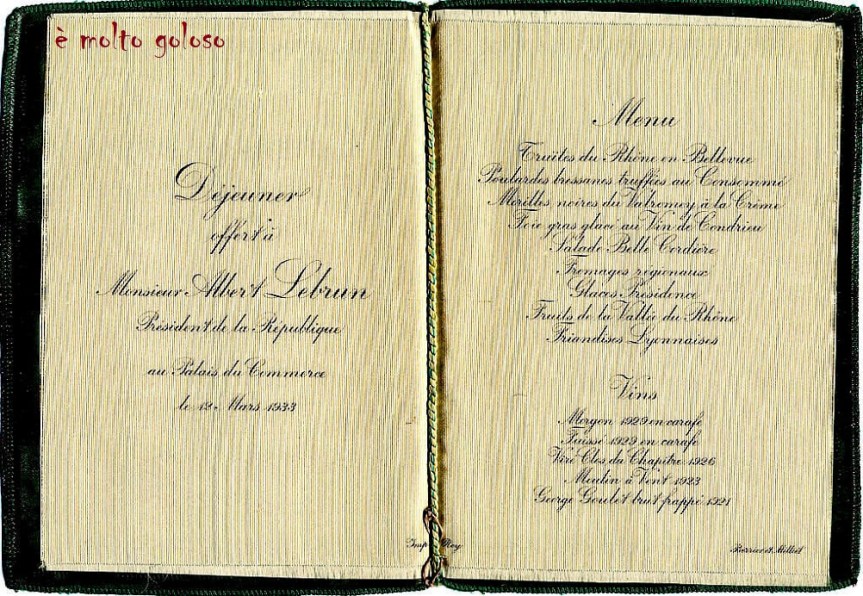 è molto goloso
Déjeuner
offert à
Monsieur Albert Lebrun
Président de la République
au Palais du Commerce
le 12 Mars 1933
Menu
Truites du Rhône en Bellevue
Poulardes bressanes truffées au Consommé
Morilles noires du Valromey à la Crème
Foie gras glacé au Vin de Condrieu
Salade Belle Cordière
Fromages régionaux
Glaces Présidence
Fruits de la Vallée du Rhône
Friandises Lyonnaises
Vins
Morgon 1929 en carafe
Fuissé 1929 en carafe
Viré Clos du Chapitre 1926
Moulin à Vent 1923
George Goulet brut frappé 1921
Berrier et Milliet